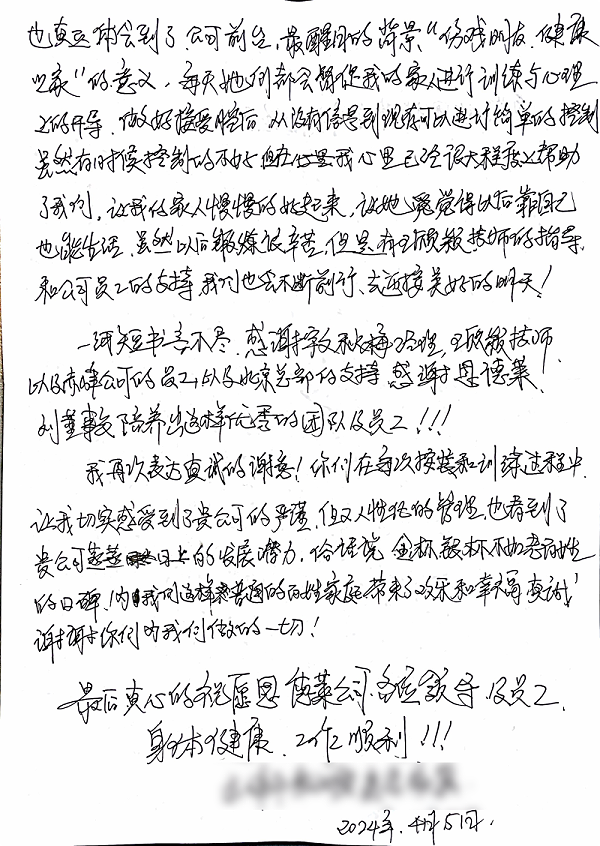 也真正体会到了公司前台，最醒目的背景“伤残朋友、健康
之家”的意义，每天她们都会督促我的家人进行训练与心理
上的开导。做好接受腔后，从没有信号到现在可以进行简单的控制
虽然有时候控制的不好，但在心里我心里已经很大程度上帮助
了我们，让我的家人慢慢的好起来，让她觉得以后靠自己
也能生活，虽然以后锻炼很辛苦，但是有王颀敏技师的指导、
和公司员工的支持，我们也会不断前行、去迎接美好的明天！
一纸短书言不尽，感谢秋梅经理，王颀敏技师
以及赤峰公司的员工，以及北京总部的支持，感谢恩德莱！
刘董事长培养出这样优秀的团队及员工！！！
我再次表达真诚的谢意！你们在每次按装和训练过程中，
让我切实感受到了贵公司的严谨，但又人性化的管理，也看到了
贵公司蒸蒸日上的发展潜力，俗话说金杯银杯不如老百姓
的口碑，为我们这样普通的百姓家庭带来了欢乐和幸福，真诚
谢谢你们为我们做的一切！
最后真心的祝愿恩德莱公司、各位领导及员工，
身体健康，工作顺利！！！
2024年，4月5日.